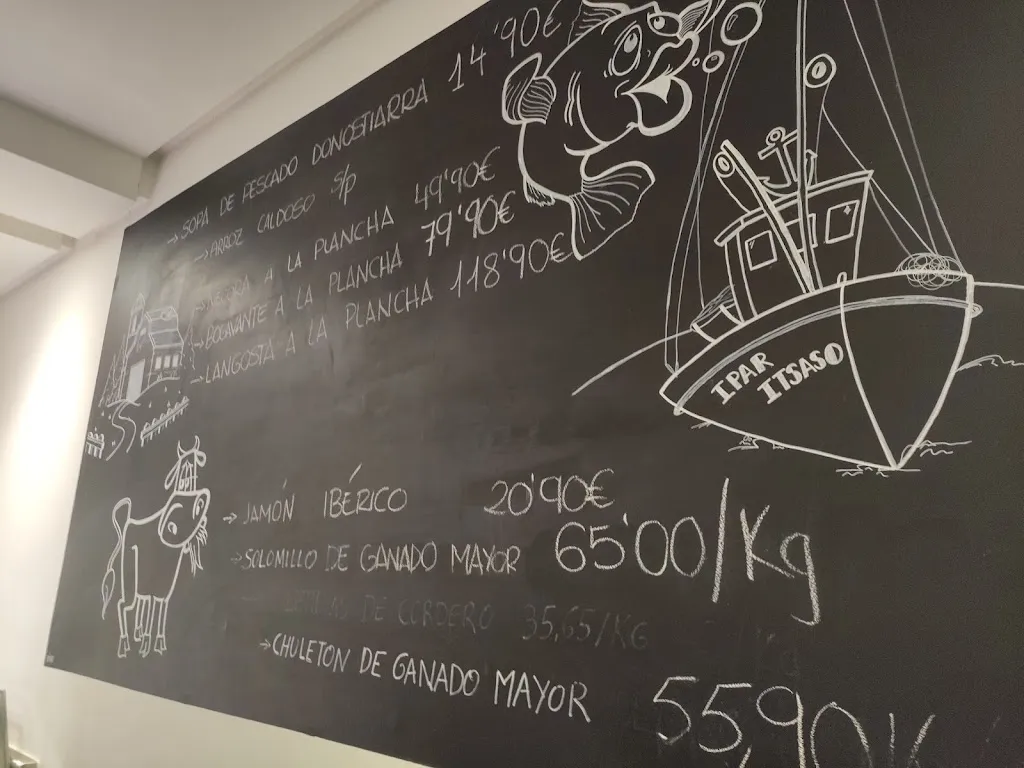 → SOPA DE PESCADO DONOSTIARRA 14'90€
→ ARROZ CALDOSO S/P
A LA PLANCHA 49'90€
BOGAVANTE A LA PLANCHA 79'90€
LANGOSTA A LA PLANCHA 118'90€
IPAR
ITSASO
→ JAMÓN IBÉRICO 20'90€
→ SOLOMILLO DE GANADO MAYOR 65'00/Kg
DE CORDERO 35,65/KG
→ CHULETON DE GANADO MAYOR 55,90